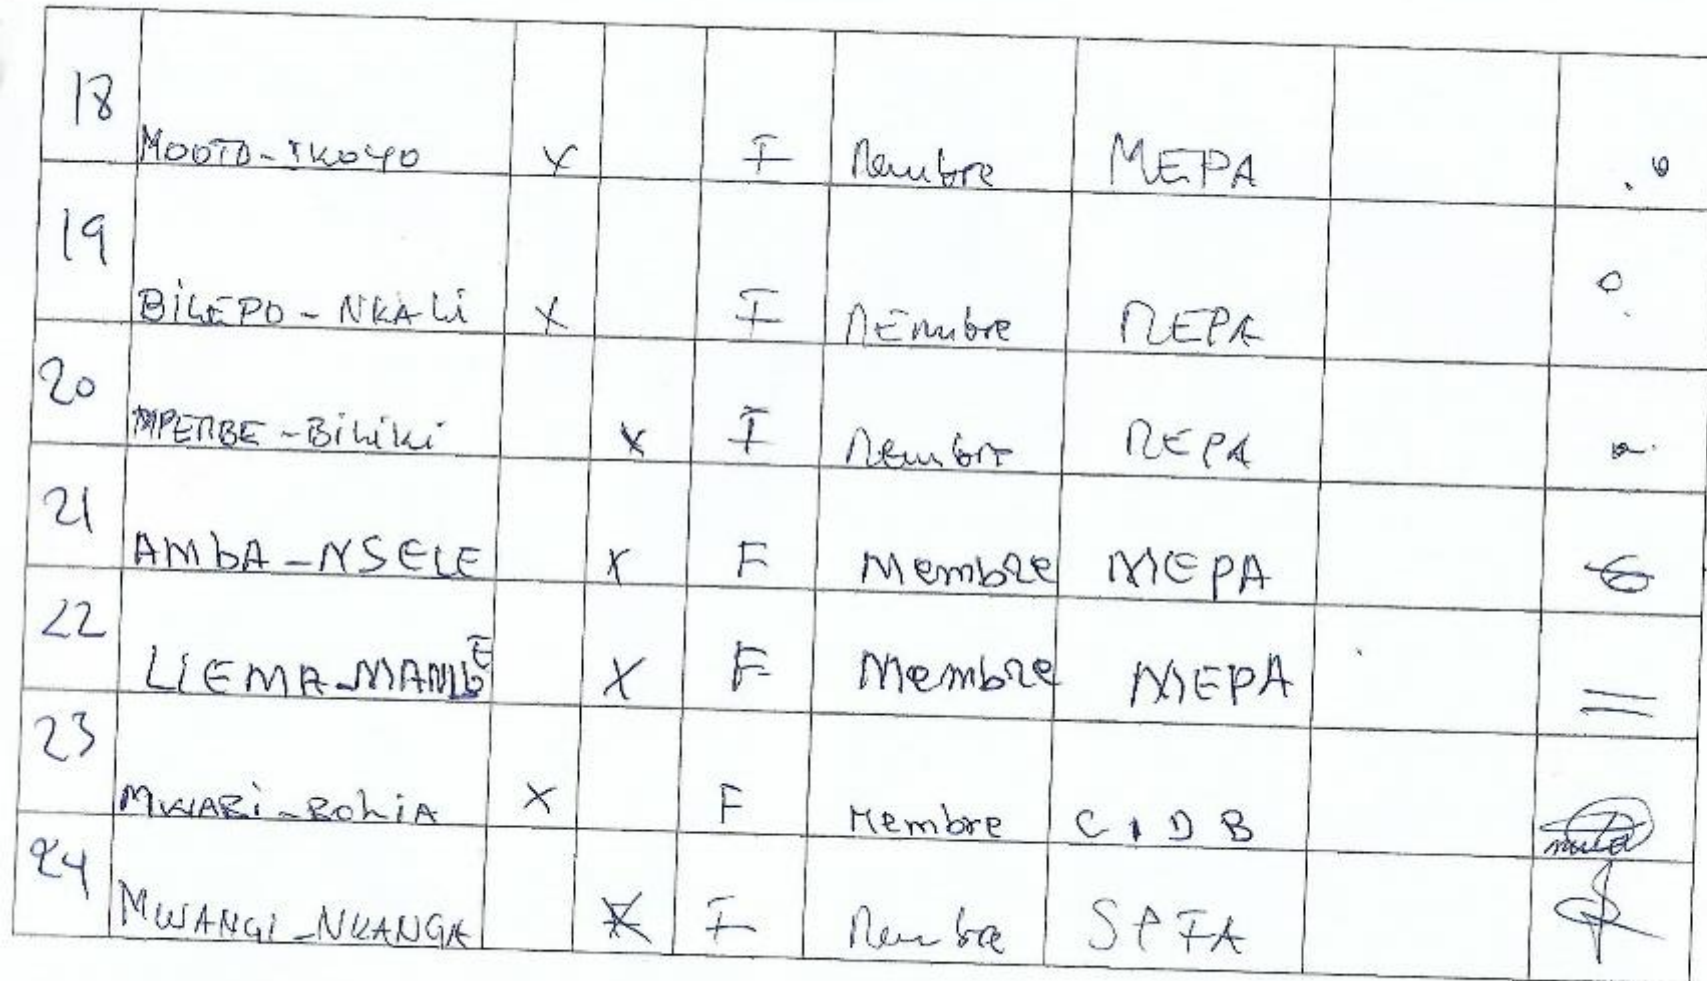 18 MOOTO-IKOYO X F Membre MEPA
19 BILEPO-NKALi X F MEmbre MEPA
20 MPEMBE-BiLiKi X F Membre MEPA
21 AMbA-NSELE X F Membre MEPA
22 LIEMA-MANDE X F Membre MEPA
23 MWABi-BOLiA X F Membre CIDB
24 MWANGI-NKANGA X F Membre SPFA